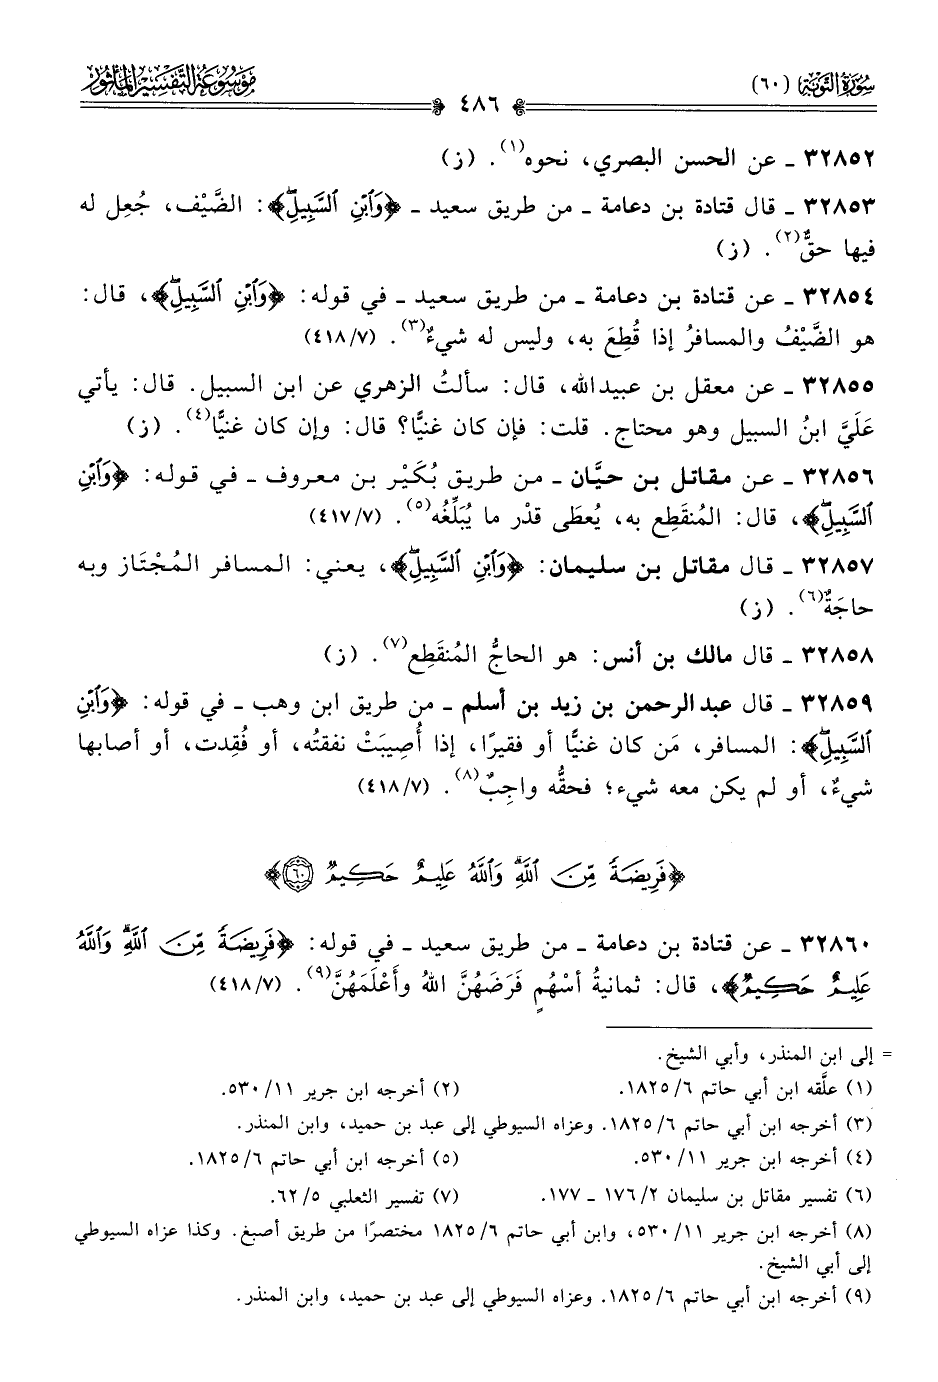 سُورَةُ التَّوْبَةِ (٦٠)
مَوْسُوعَةُ التَّفْسِيرِ المَأْثُور
٤٨٦
٣٢٨٥٢ ـ عن الحسن البصري، نحوه(١). (ز)
٣٢٨٥٣ ـ قال قتادة بن دعامة ـ من طريق سعيد ـ ﴿وَٱبْنِ ٱلسَّبِيلِۖ﴾: الضَّيْف، جُعِل له
فيها حقٌّ(٢). (ز)
٣٢٨٥٤ ـ عن قتادة بن دعامة ـ من طريق سعيد ـ في قوله: ﴿وَٱبْنِ ٱلسَّبِيلِۖ﴾، قال:
هو الضَّيْفُ والمسافرُ إذا قُطِعَ به، وليس له شيءٌ(٣). (٤١٨/٧)
٣٢٨٥٥ ـ عن معقل بن عبيدالله، قال: سألتُ الزهري عن ابن السبيل. قال: يأتي
عَلَيَّ ابنُ السبيل وهو محتاج. قلت: فإن كان غنيًّا؟ قال: وإن كان غنيًّا(٤). (ز)
٣٢٨٥٦ ـ عن مقاتل بن حيَّان ـ من طريق بُكَيْر بن معروف ـ في قوله: ﴿وَٱبْنِ
ٱلسَّبِيلِۖ﴾، قال: المُنقَطِع به، يُعطَى قدْر ما يُبَلِّغُه(٥). (٤١٧/٧)
٣٢٨٥٧ ـ قال مقاتل بن سليمان: ﴿وَٱبْنِ ٱلسَّبِيلِۖ﴾، يعني: المسافر المُجْتَاز وبه
حاجَةٌ(٦). (ز)
٣٢٨٥٨ ـ قال مالك بن أنس: هو الحاجُّ المُنقَطِع(٧). (ز)
٣٢٨٥٩ ـ قال عبدالرحمن بن زيد بن أسلم ـ من طريق ابن وهب ـ في قوله: ﴿وَٱبْنِ
ٱلسَّبِيلِۖ﴾: المسافر، مَن كان غنيًّا أو فقيرًا، إذا أُصِيبَتْ نفقتُه، أو فُقِدت، أو أصابها
شيءٌ، أو لم يكن معه شيء؛ فحقُّه واجِبٌ(٨). (٤١٨/٧)
﴿فَرِيضَةً مِّنَ ٱللَّهِۗ وَٱللَّهُ عَلِيمٌ حَكِيمٌ ٦٠﴾
٣٢٨٦٠ ـ عن قتادة بن دعامة ـ من طريق سعيد ـ في قوله: ﴿فَرِيضَةً مِّنَ ٱللَّهِۗ وَٱللَّهُ
عَلِيمٌ حَكِيمٌ﴾، قال: ثمانيةُ أسْهُمٍ فَرَضَهُنَّ اللهُ وأَعْلَمَهُنَّ(٩). (٤١٨/٧)
= إلى ابن المنذر، وأبي الشيخ.
(١) علَّقه ابن أبي حاتم ١٨٢٥/٦. (٢) أخرجه ابن جرير ٥٣٠/١١.
(٣) أخرجه ابن أبي حاتم ١٨٢٥/٦. وعزاه السيوطي إلى عبد بن حميد، وابن المنذر.
(٤) أخرجه ابن جرير ٥٣٠/١١. (٥) أخرجه ابن أبي حاتم ١٨٢٥/٦.
(٦) تفسير مقاتل بن سليمان ١٧٦/٢ ـ ١٧٧. (٧) تفسير الثعلبي ٦٢/٥.
(٨) أخرجه ابن جرير ٥٣٠/١١، وابن أبي حاتم ١٨٢٥/٦ مختصرًا من طريق أصبغ. وكذا عزاه السيوطي
إلى أبي الشيخ.
(٩) أخرجه ابن أبي حاتم ١٨٢٥/٦. وعزاه السيوطي إلى عبد بن حميد، وابن المنذر.